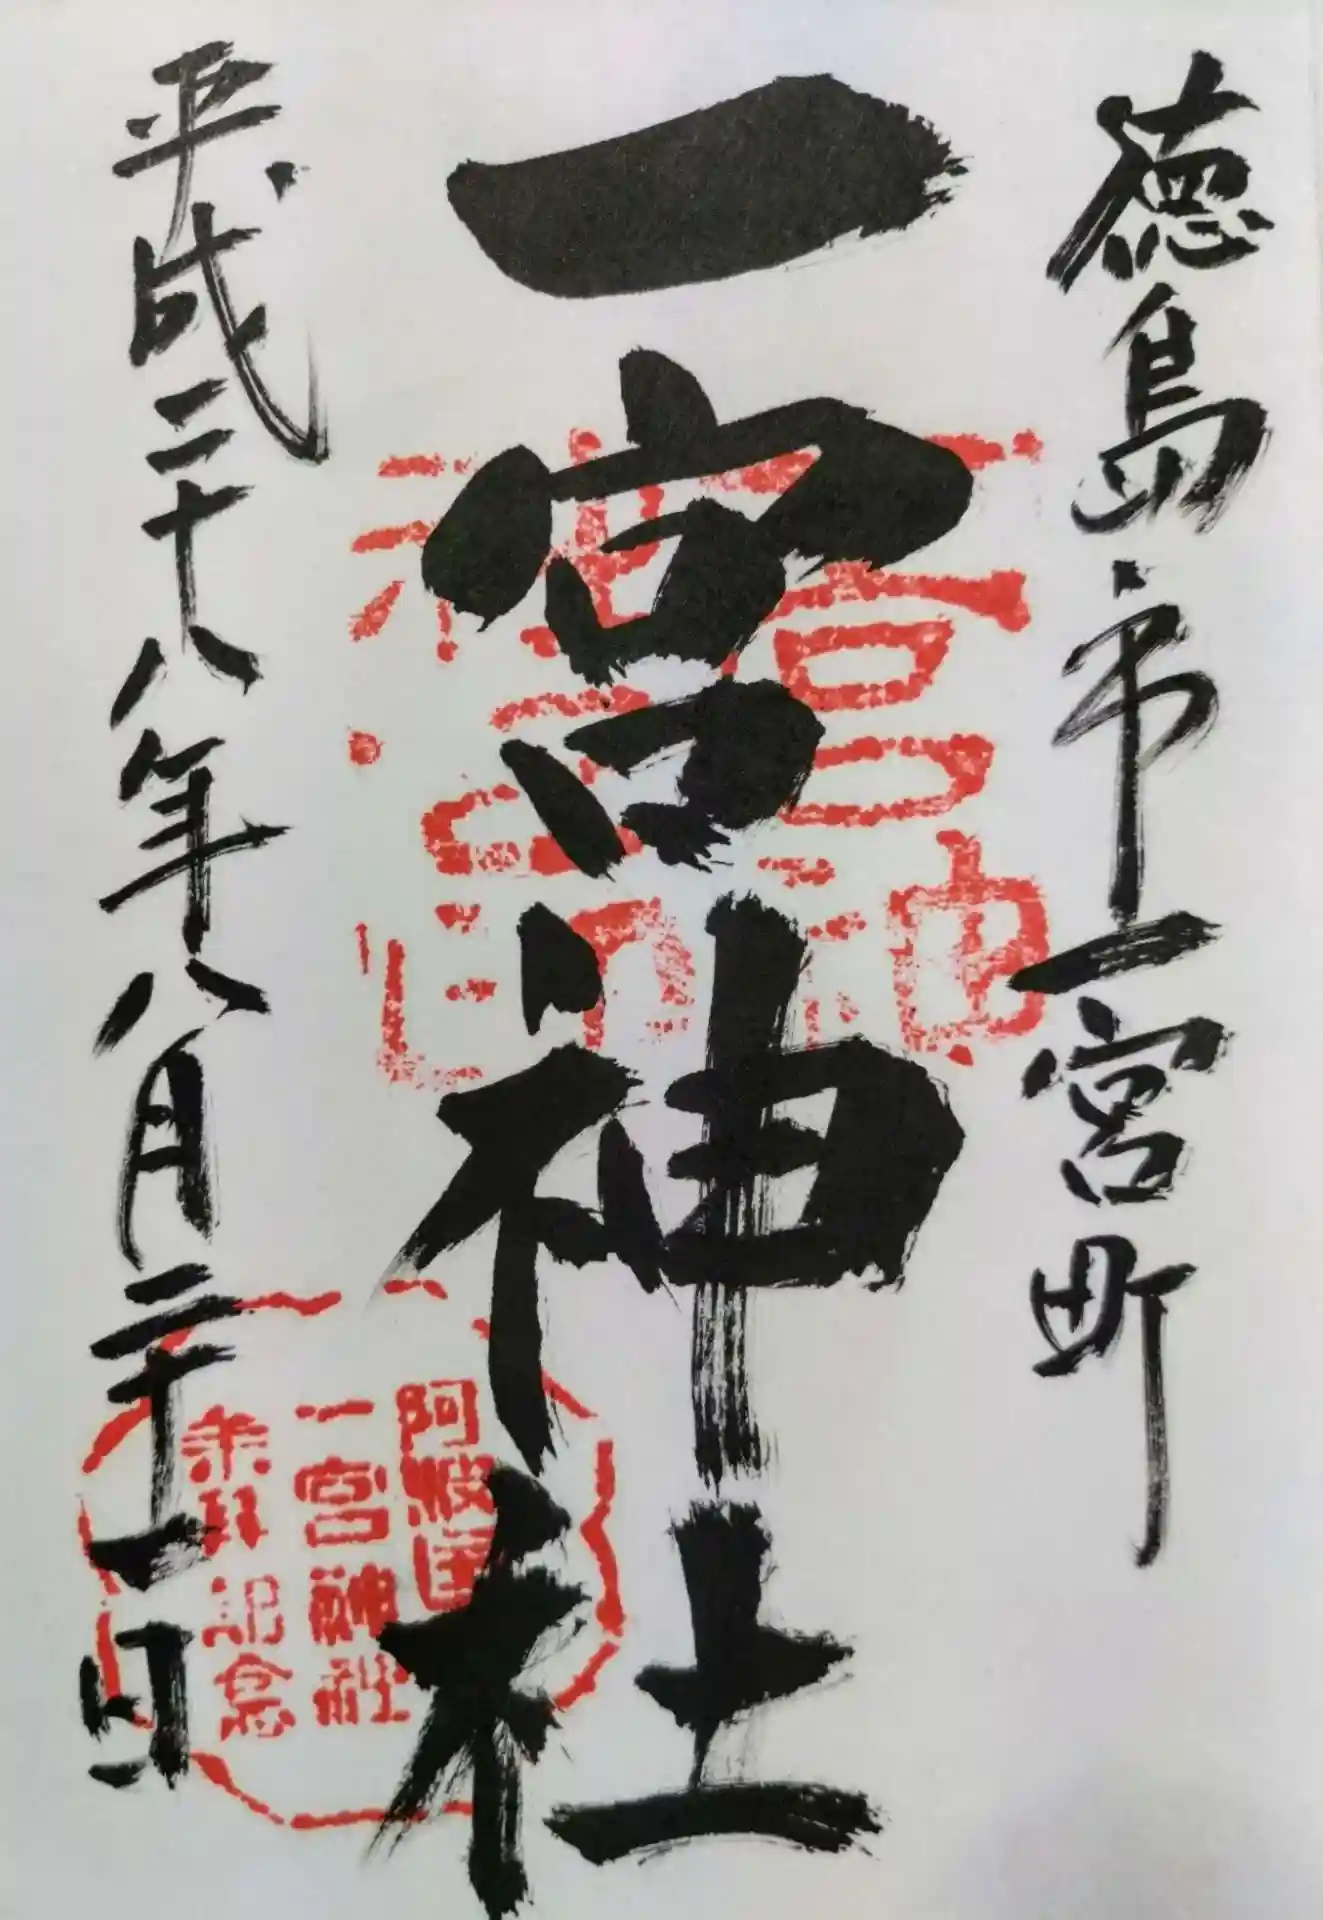 徳島市一宮町
一宮神社
平成二十八年八月二十一日
阿波国
一宮神社
参拝記念